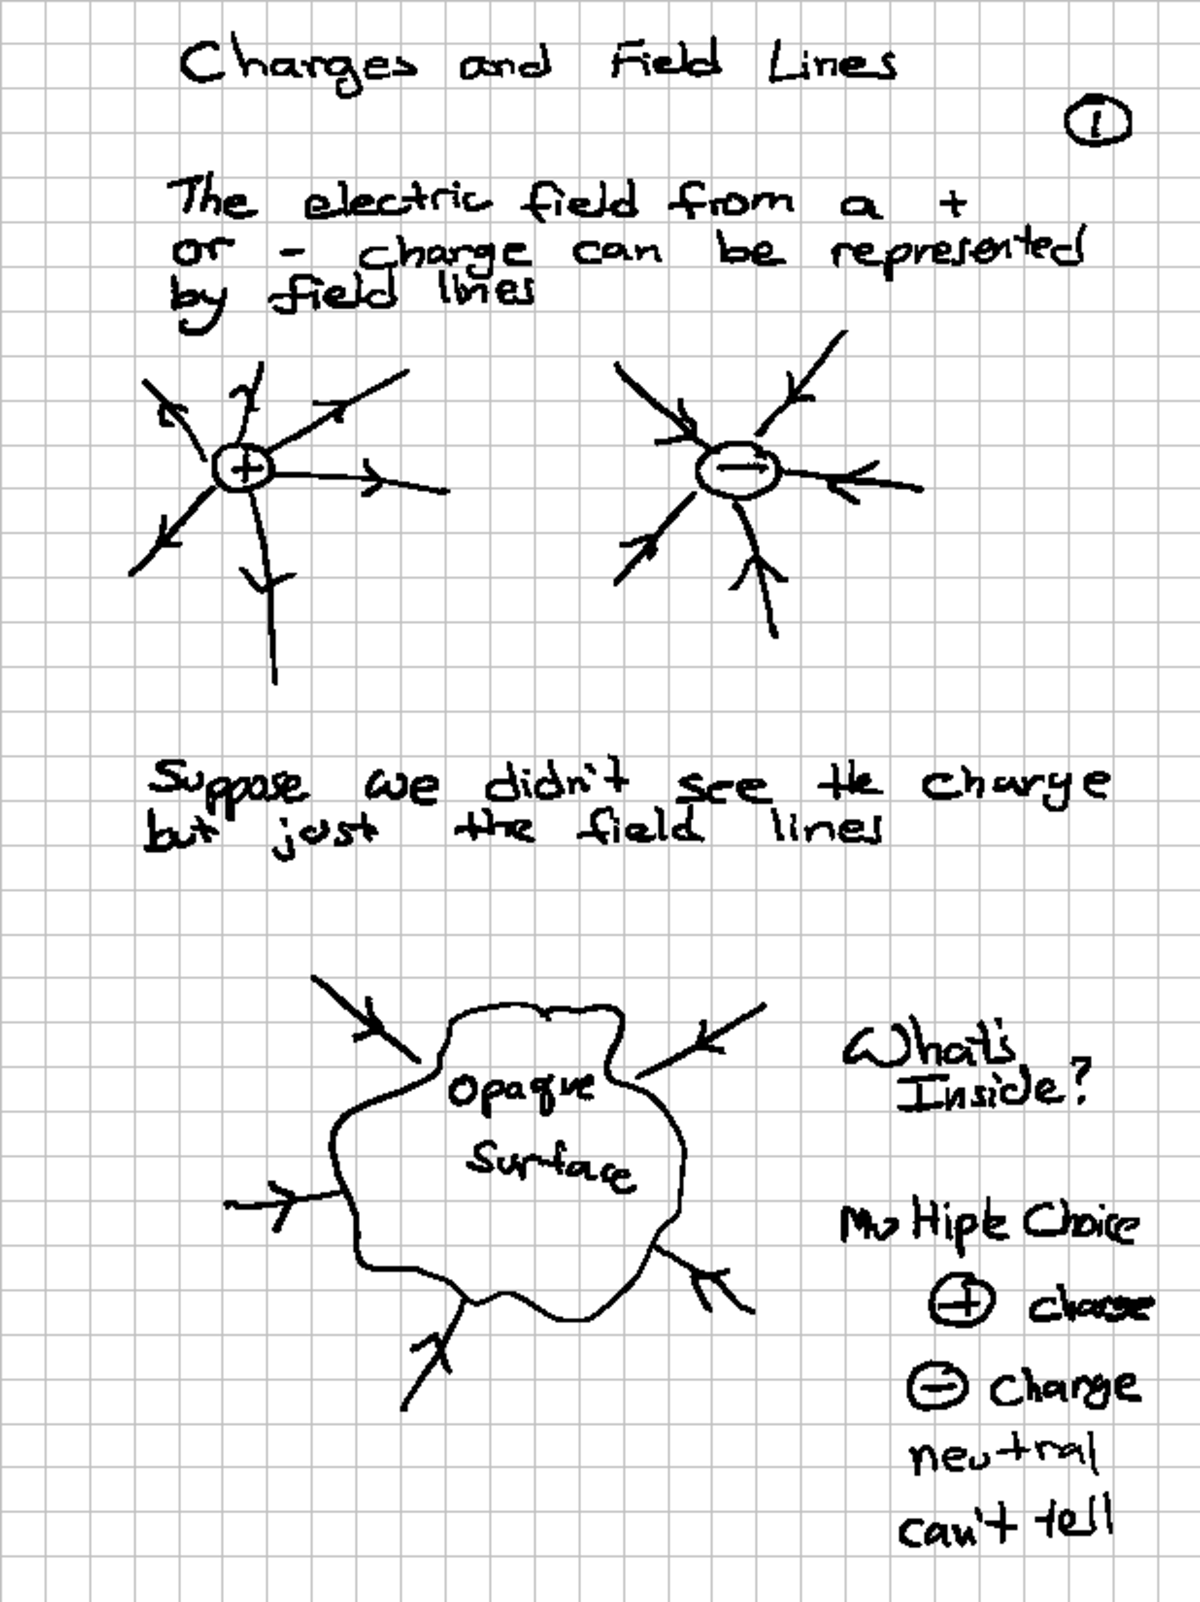 Charges and Field Lines
1
The electric field from a +
or - charge can be represented
by field lines
+
−
Suppose we didn't see the charge
but just the field lines
Opaque
Surface
What's
Inside?
Multiple Choice
+ charge
− charge
neutral
can't tell